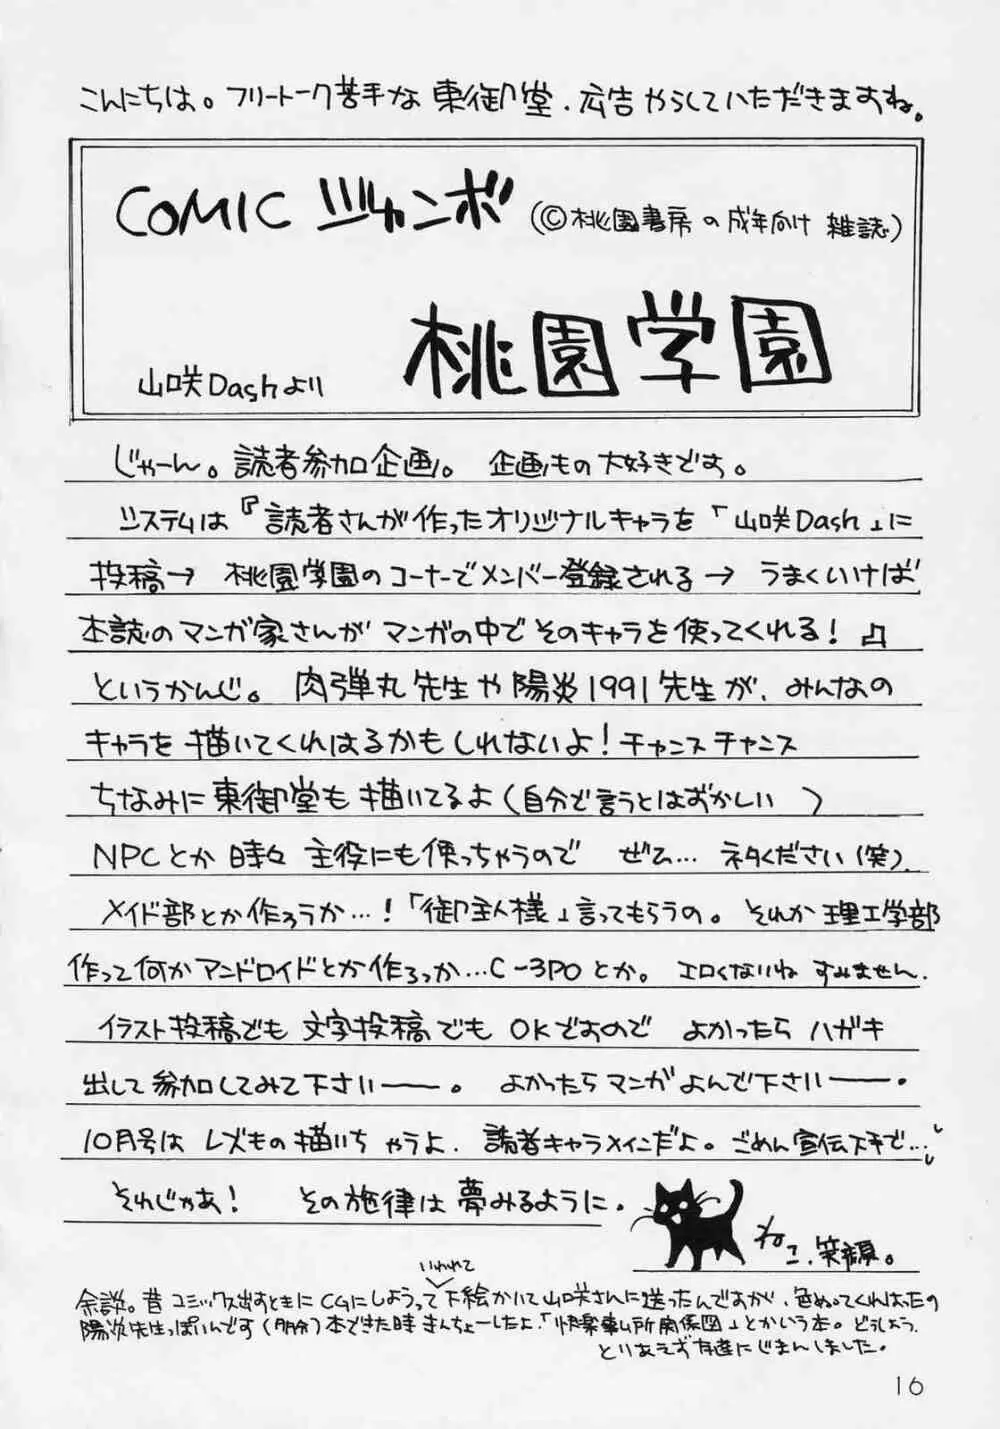 こんにちは。フリートーク苦手な 東御堂、広告やらしていただきますね。
COMIC ジャンボ (©桃園書房の成年向け 雑誌)
桃園学園
山咲Dashより
じゃーん。読者参加企画。 企画もの大好きです。
システムは『読者さんが作ったオリジナルキャラを「山咲Dash」に
投稿→ 桃園学園のコーナーでメンバー登録される→ うまくいけば
本誌のマンガ家さんが マンガの中でそのキャラを使ってくれる!』
というかんじ。 肉弾丸先生や陽炎1991先生が、みんなの
キャラを描いてくれはるかもしれないよ!チャンスチャンス
ちなみに東御堂も描いてるよ(自分で言うとはずかしい )
NPCとか 時々 主役にも使っちゃうので ぜひ… ネタください(笑)
メイド部とか作ろうか…!「御主人様」言ってもらうの。それか理工学部
作って何かアンドロイドとか作ろっか…C-3POとか。エロくないね すみません.
イラスト投稿でも 文字投稿でも OKですので よかったら ハガキ
出して参加してみて下さいーー。 よかったらマンガよんで下さいーー.
10月号は レズもの描いちゃうよ. 読者キャラメインだよ。ごめん宣伝下手で…
それじゃあ! その旋律は夢みるように.
ねこ、笑顔。
いわれて
余談。昔 コミックス出すときに CGにしようって下絵かいて山咲さんに送ったんですが、色ぬってくれはったの
陽炎先生っぽいんです(多分)本できた時きんちょーしたよ.「快楽事ム所関係図」とかいう本。どうしよう.
とりあえず友達にじまんしました.
16